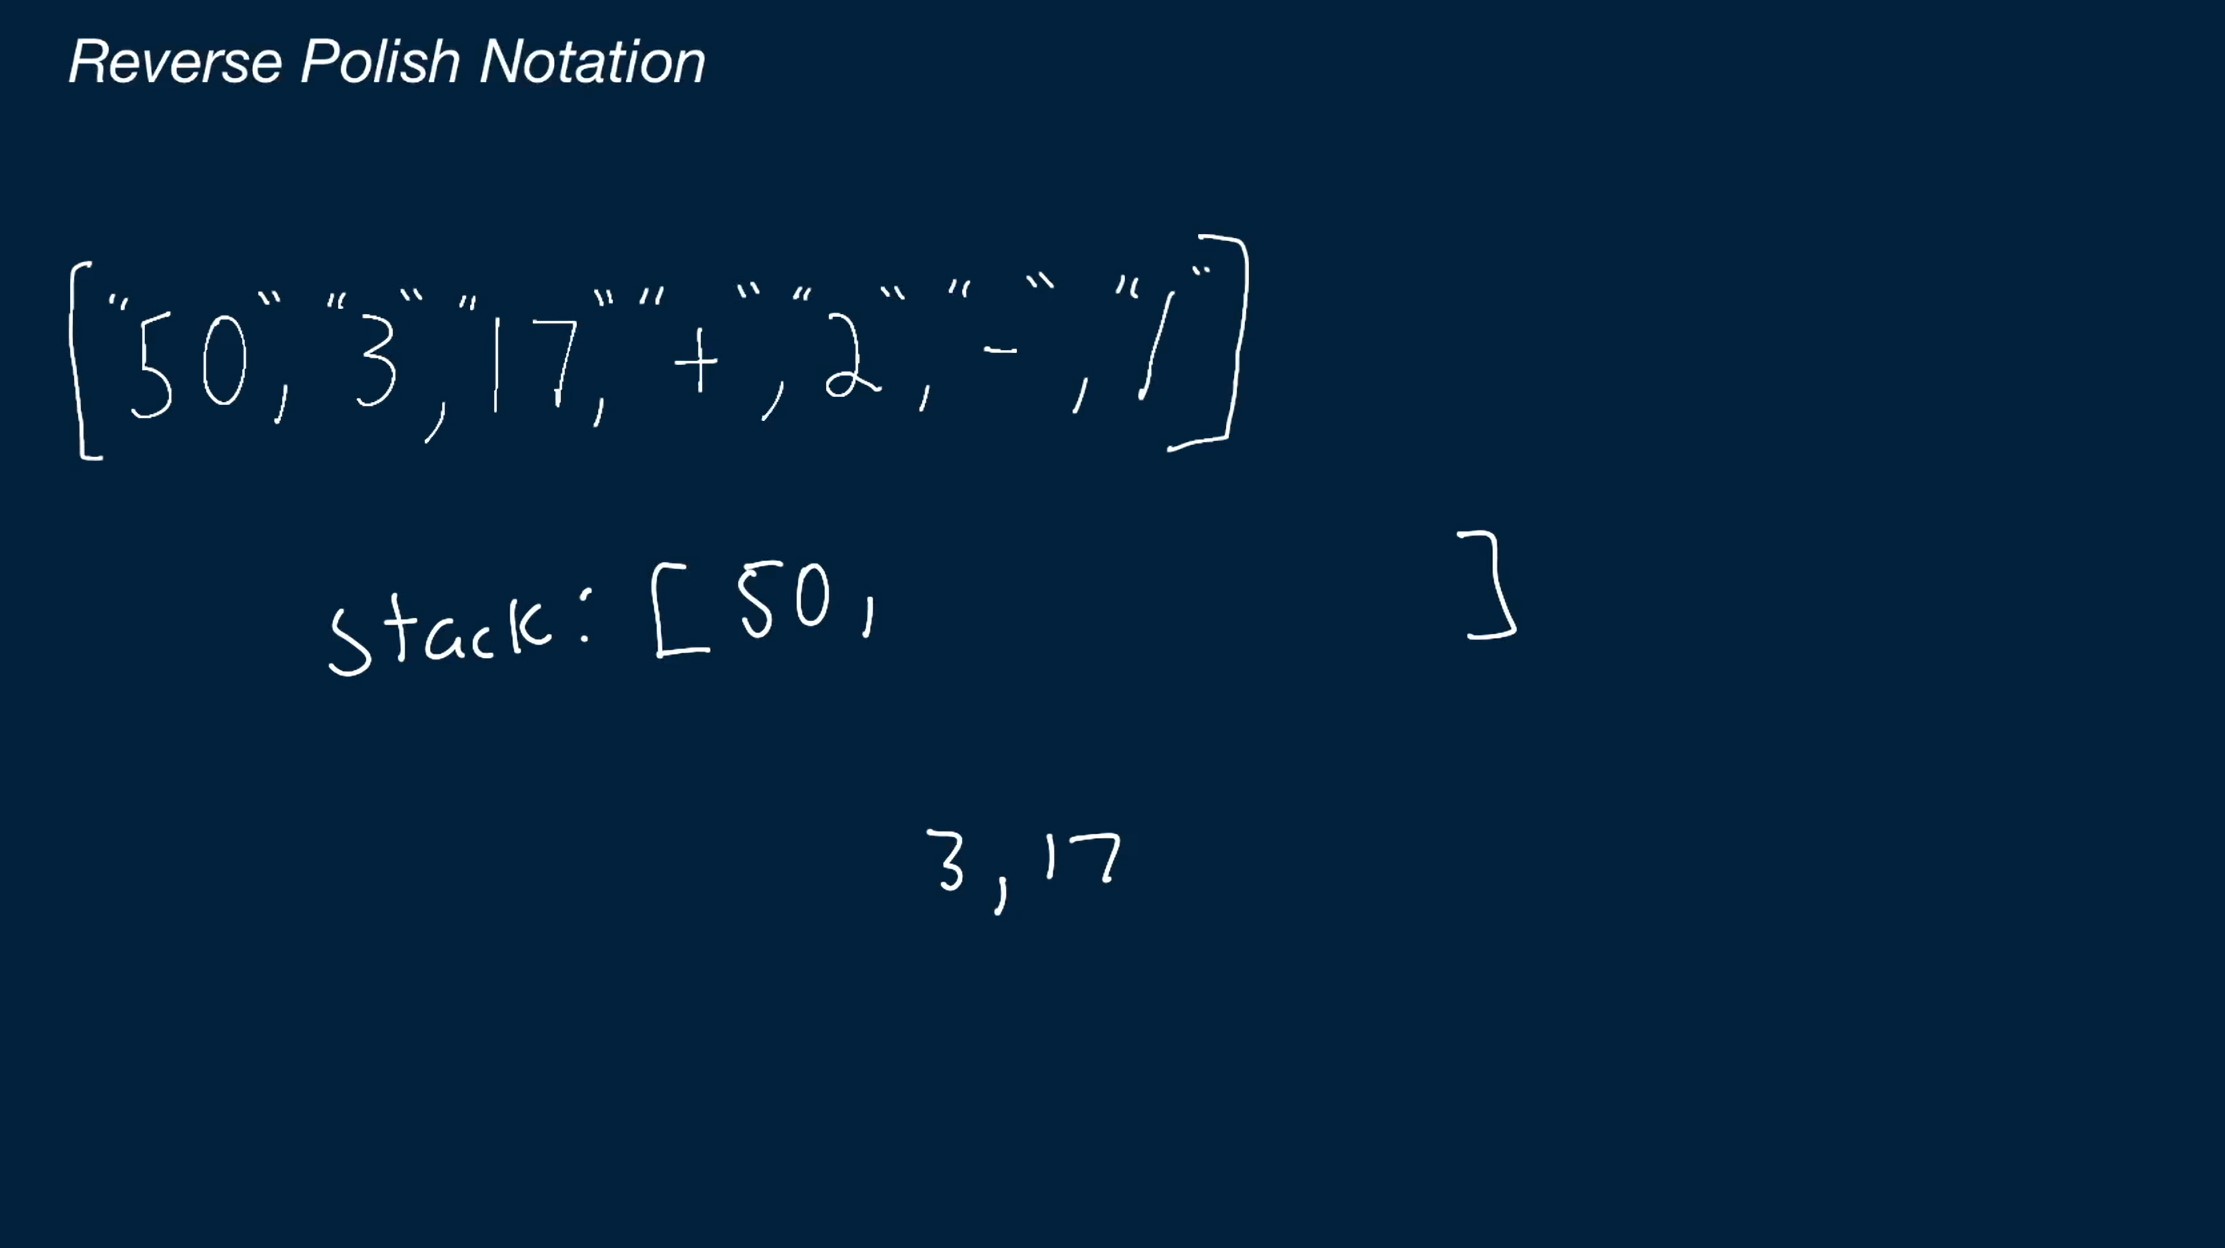 Reverse Polish Notation
["50", "3", "17", "+", "2", "-", "/"]
stack: [50, ]
3, 17